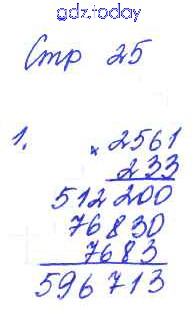 gdz.today
Стр 25
1. × 2561
233
512200
76830
7683
596713